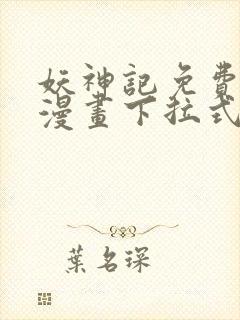 妖神記免費
漫畫下拉式
葉名琛